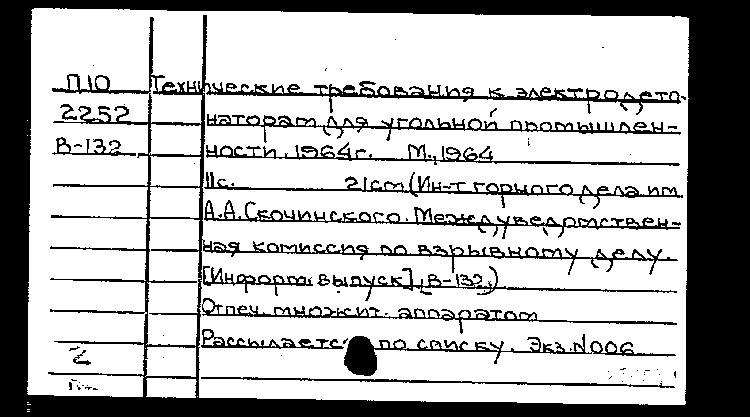 П10 Технические требования к электродето-
2252 наторам для угольной промышлен-
В-132 ности. 1964г. М., 1964
11с. 21cm (Ин-т горного дела им.
А.А.Скочинского. Междуведомствен-
ная комиссия по взрывному делу.
[Информ. выпуск], В-132,)
Отпеч. множит. аппаратом
Рассылается по списку. Экз.N006
2